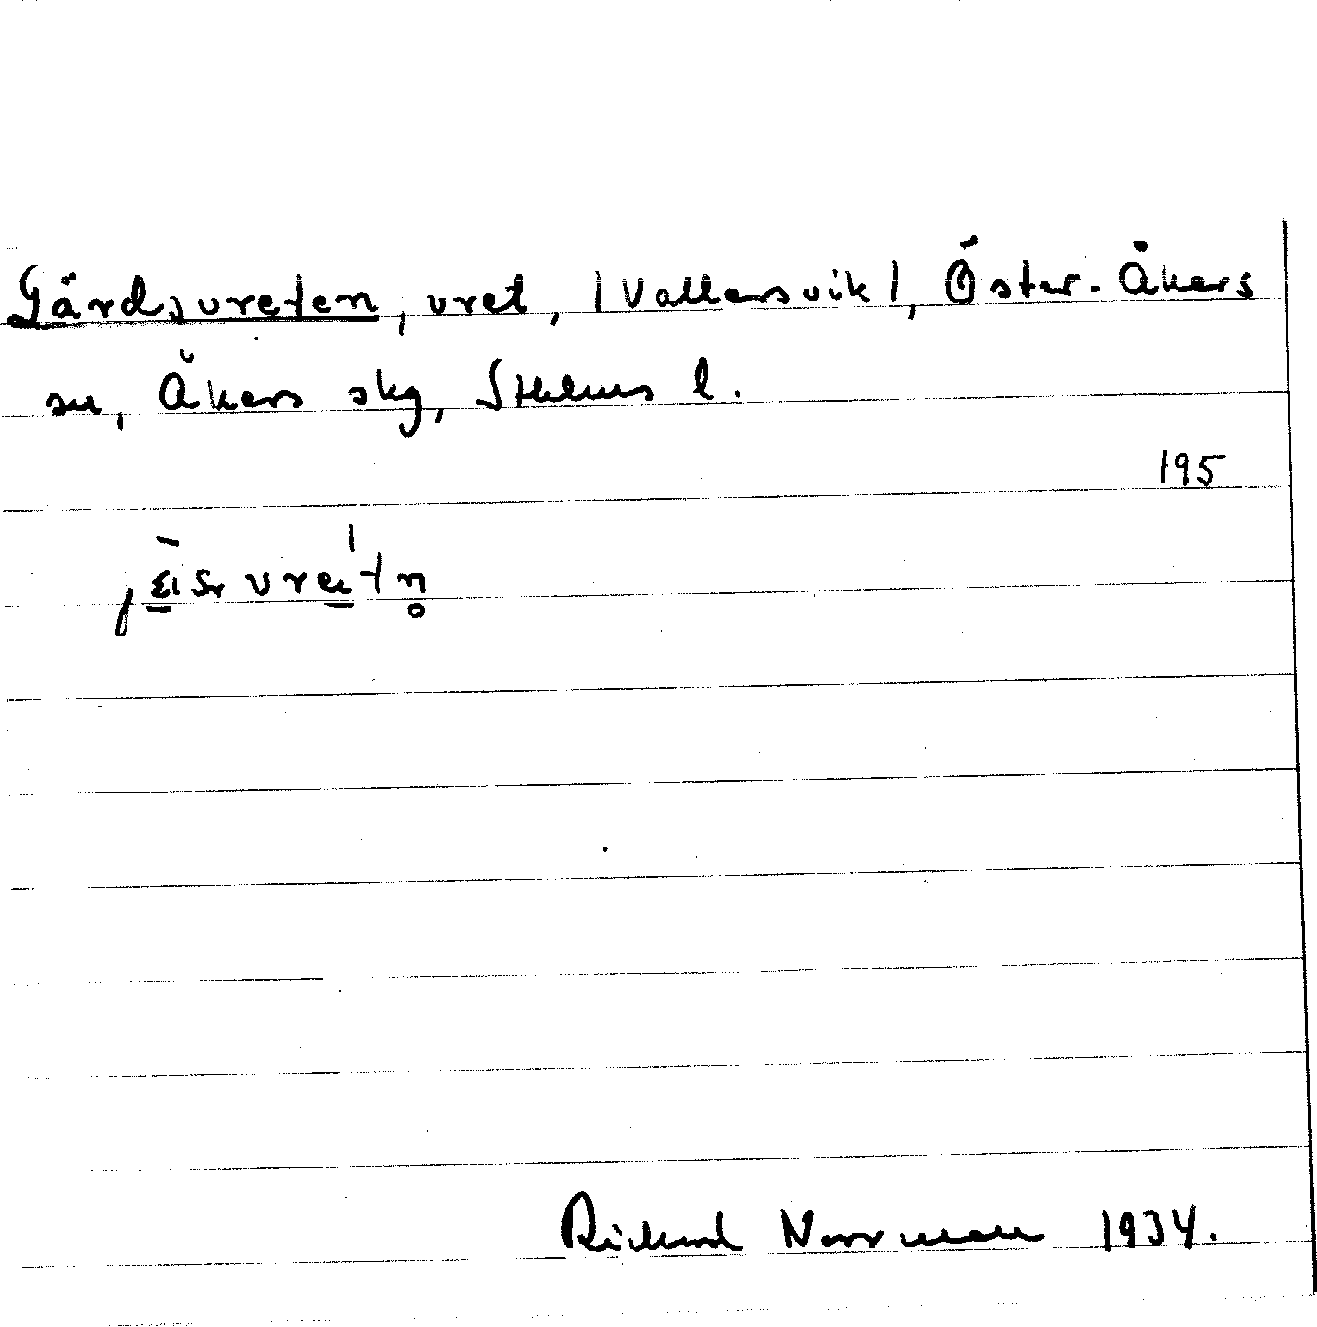 Gärdsvreten, vret, |Vallersvik|, Öster-Åkers
sn, Åkers skg, Sthlms l.
195
Richard Norrman 1934.